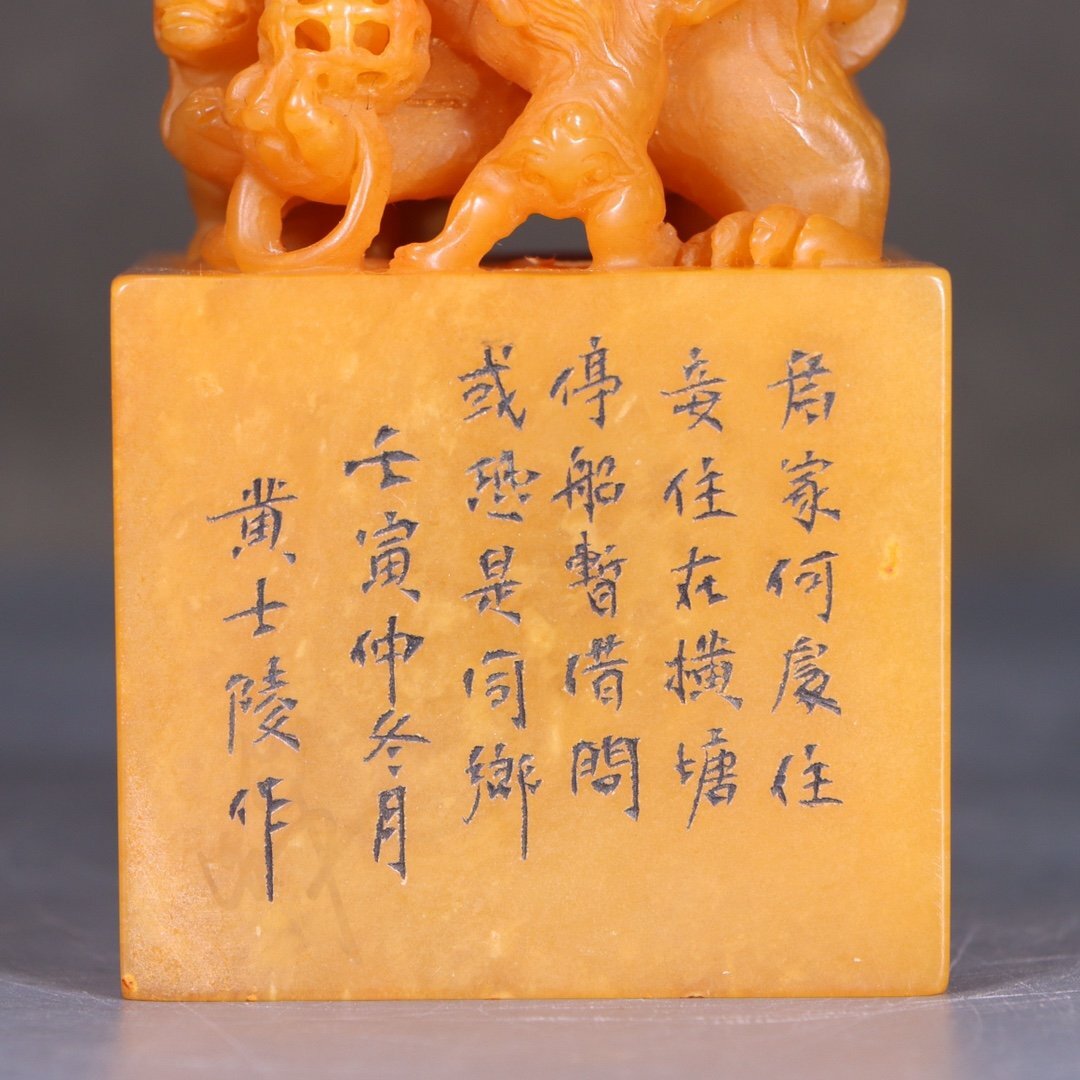 君家何處住
妾住在橫塘
停船暫借問
或恐是同鄉
壬寅仲冬月
黄士陵作